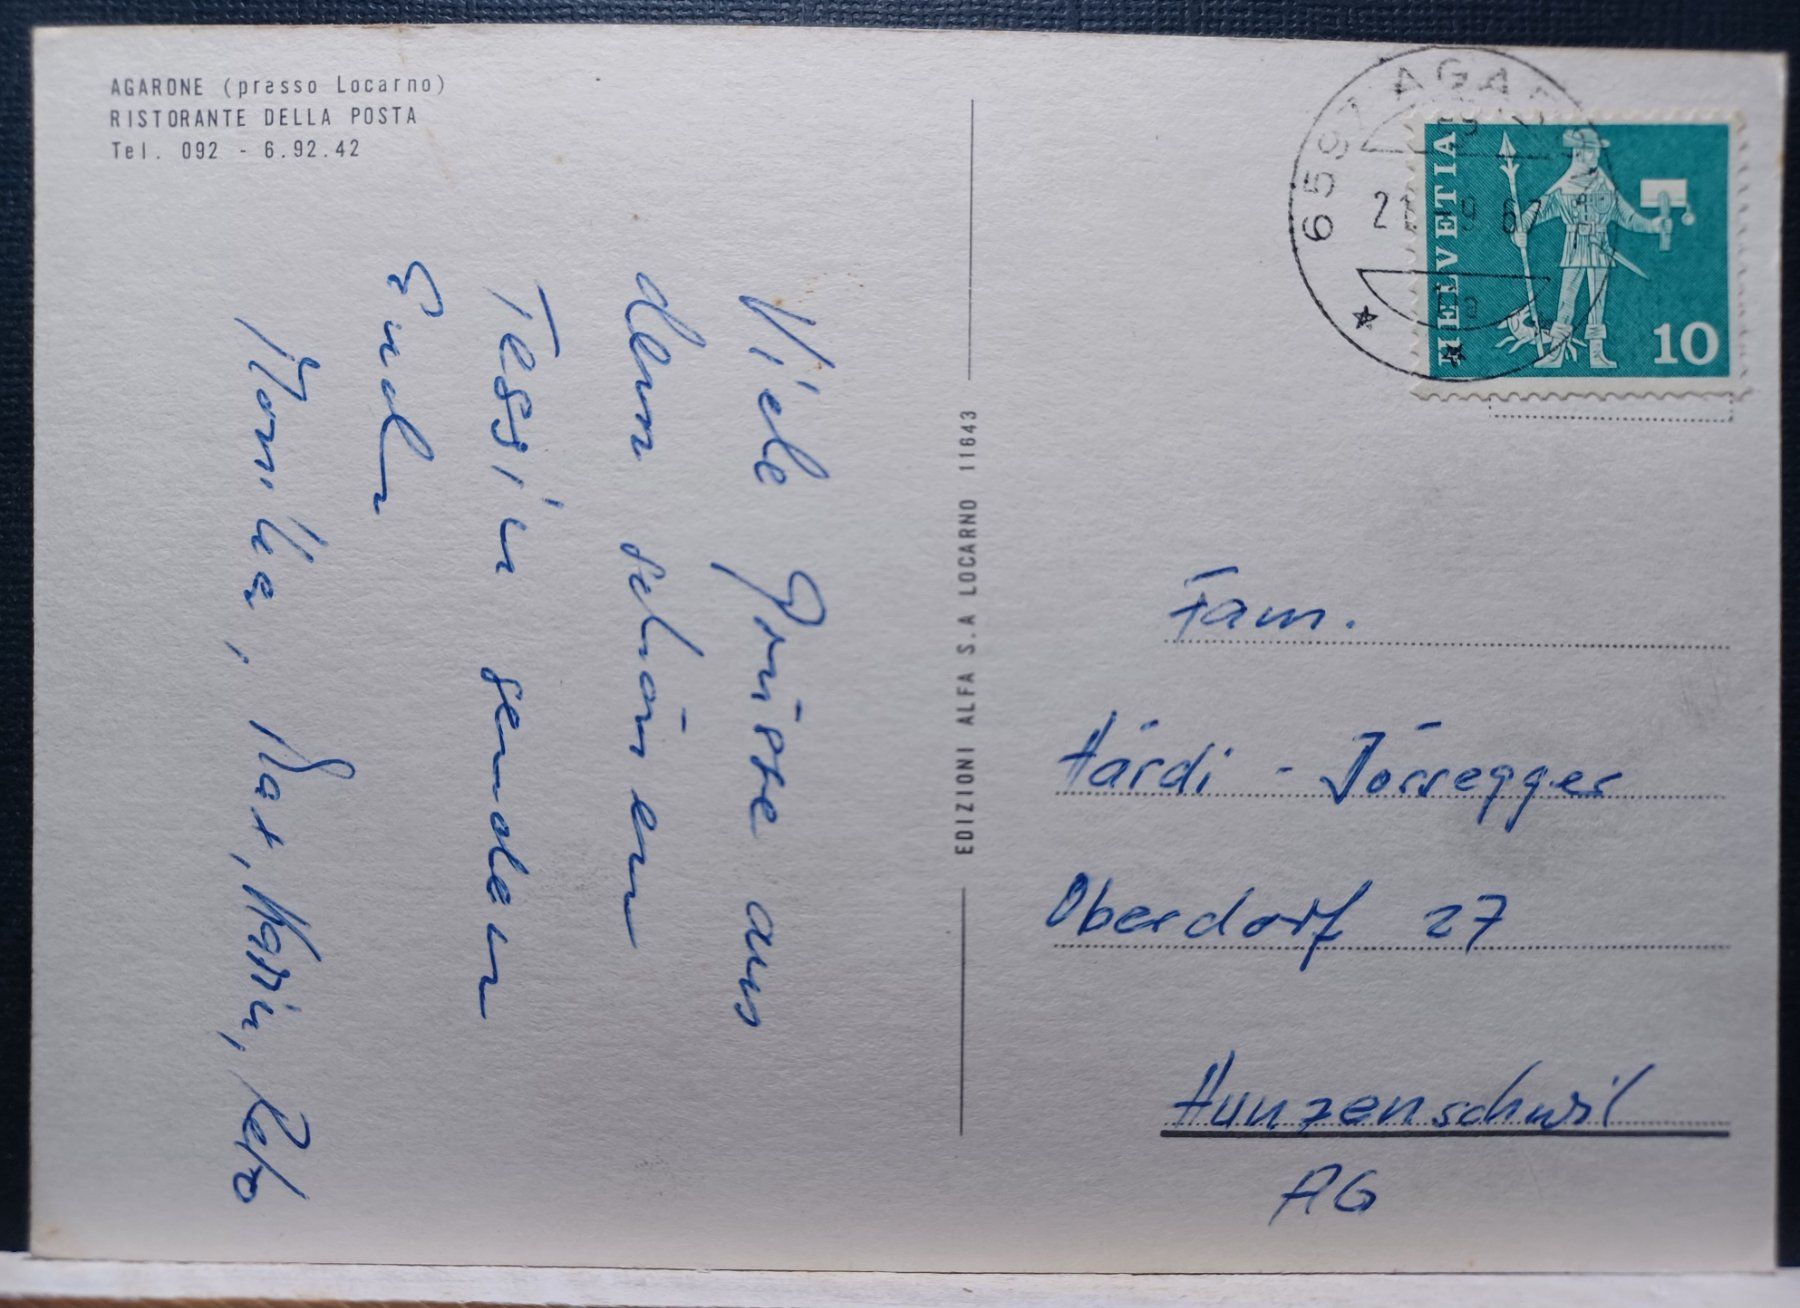 AGARONE (presso Locarno)
RISTORANTE DELLA POSTA
Tel. 092 - 6.92.42
Viele Grüsse aus
dem schönen
Tessin senden
Euch
Monika, Max, Karin, Reto
EDIZIONI ALFA S.A LOCARNO 11643
6597 AGAR
9 67
HELVETIA
10
Fam.
Härdi - Jörregger
Oberdorf 27
Hunzenschwil
AG